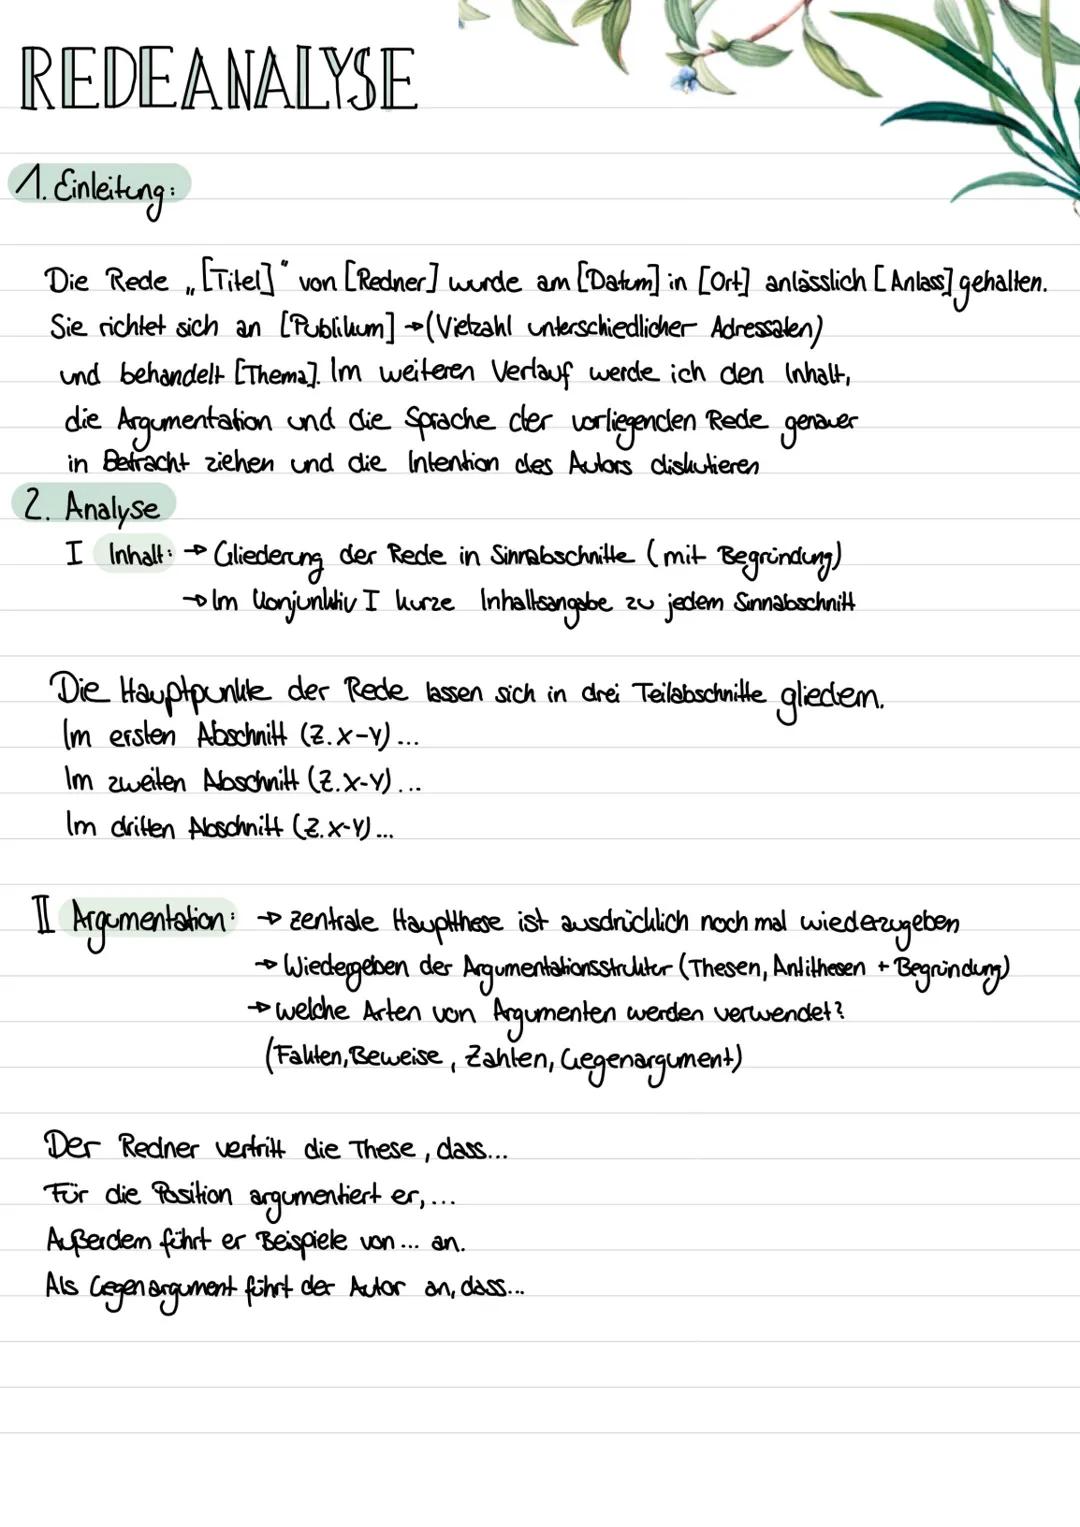 REDEANALYSE
1. Einleitung:
Die Rede „[Titel]" von [Redner] wurde am [Datum] in [Ort] anlässlich [Anlass] gehalten.
Sie richtet sich an [Publikum] → (Vielzahl unterschiedlicher Adressaten)
und behandelt [Thema]. Im weiteren Verlauf werde ich den Inhalt,
die Argumentation und die Sprache der vorliegenden Rede genauer
in Betracht ziehen und die Intention des Autors diskutieren
2. Analyse
I Inhalt: → Gliederung der Rede in Sinnabschnitte (mit Begründung)
→ Im Konjunktiv I kurze Inhaltsangabe zu jedem Sinnabschnitt
Die Hauptpunkte der Rede lassen sich in drei Teilabschnitte gliedern.
Im ersten Abschnitt (Z.X-Y)...
Im zweiten Abschnitt (Z.X-Y)...
Im dritten Abschnitt (Z.X-Y)...
II Argumentation: → zentrale Hauptthese ist ausdrücklich noch mal wiederzugeben
→ Wiedergeben der Argumentationsstruktur (Thesen, Antithesen + Begründung)
→ welche Arten von Argumenten werden verwendet?
(Fakten, Beweise, Zahlen, Gegenargument)
Der Redner vertritt die These, dass...
Für die Position argumentiert er,...
Außerdem führt er Beispiele von... an.
Als Gegenargument führt der Autor an, dass...